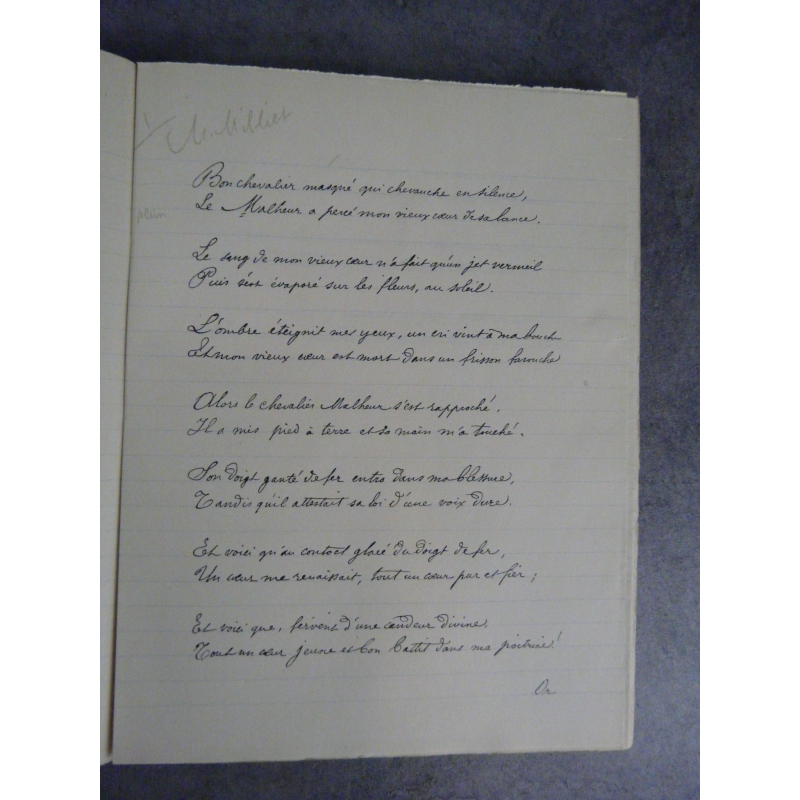 M. Milliet
Bon chevalier masqué qui chevauche en silence,
Le Malheur a percé mon vieux cœur de sa lance.
Le sang de mon vieux cœur n'a fait qu'un jet vermeil
Puis s'est évaporé sur les fleurs, au soleil.
L'ombre éteignit mes yeux, un cri vint à ma bouche
Et mon vieux cœur est mort dans un frisson farouche
Alors le chevalier Malheur s'est rapproché.
Il a mis pied à terre et sa main m'a touché.
Son doigt ganté de fer entra dans ma blessure,
Tandis qu'il attestait sa loi d'une voix dure.
Et voici qu'au contact glacé du doigt de fer,
Un cœur me renaissait, tout un cœur pur et fier ;
Et voici que, fervent d'une candeur divine,
Tout un cœur jeune et bon battit dans ma poitrine !
Or